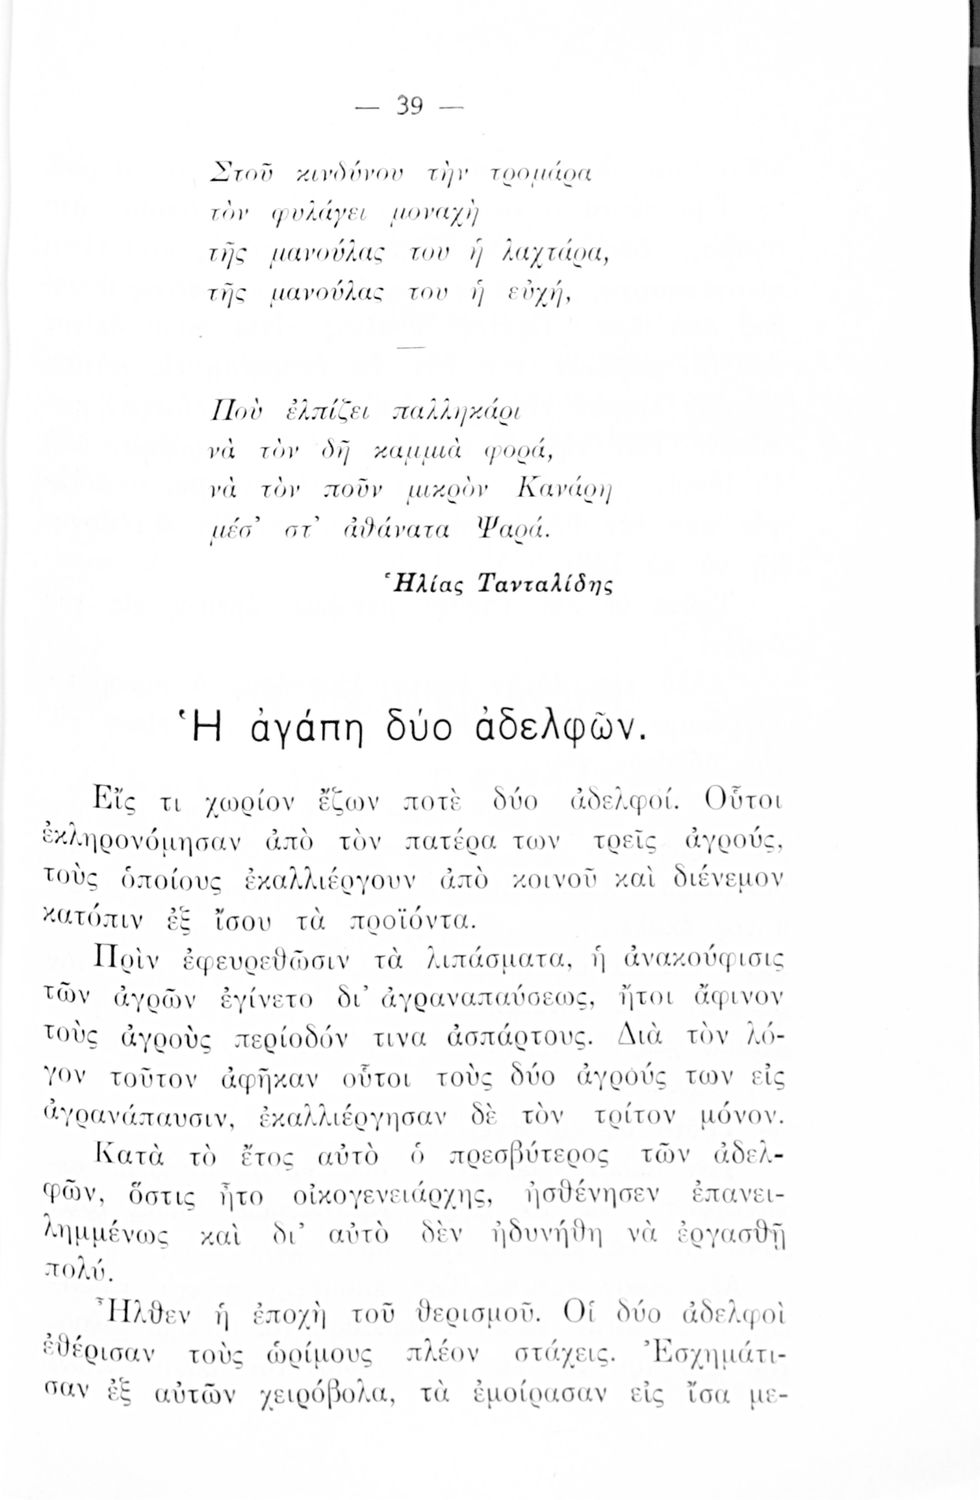 — 39 —
Στοῦ κινδύνου τὴν τρομάρα
τὸν φυλάγει μοναχὴ
τῆς μανούλας του ἡ λαχτάρα,
τῆς μανούλας του ἡ εὐχή,
—
Ποὺ ἐλπίζει παλληκάρι
νὰ τὸν δῆ καμμιὰ φορά,
νὰ τὸν ποῦν μικρὸν Κανάρη
μέσ’ στ’ ἀθάνατα Ψαρά.
Ἡλίας Τανταλίδης
Ἡ ἀγάπη δύο ἀδελφῶν.
Εἴς τι χωρίον ἔζων ποτὲ δύο ἀδελφοί. Οὗτοι
ἐκληρονόμησαν ἀπὸ τὸν πατέρα των τρεῖς ἀγρούς,
τοὺς ὁποίους ἐκαλλιέργουν ἀπὸ κοινοῦ καὶ διένεμον
κατόπιν ἐξ ἴσου τὰ προϊόντα.
Πρὶν ἐφευρεθῶσιν τὰ λιπάσματα, ἡ ἀνακούφισις
τῶν ἀγρῶν ἐγίνετο δι’ ἀγραναπαύσεως, ἤτοι ἄφινον
τοὺς ἀγροὺς περίοδόν τινα ἀσπάρτους. Διὰ τὸν λό-
γον τοῦτον ἀφῆκαν οὗτοι τοὺς δύο ἀγρούς των εἰς
ἀγρανάπαυσιν, ἐκαλλιέργησαν δὲ τὸν τρίτον μόνον.
Κατὰ τὸ ἔτος αὐτὸ ὁ πρεσβύτερος τῶν ἀδελ-
φῶν, ὅστις ἦτο οἰκογενειάρχης, ἠσθένησεν ἐπανει-
λημμένως καὶ δι’ αὐτὸ δὲν ἠδυνήθη νὰ ἐργασθῇ
πολύ.
Ἦλθεν ἡ ἐποχὴ τοῦ θερισμοῦ. Οἱ δύο ἀδελφοὶ
ἐθέρισαν τοὺς ὡρίμους πλέον στάχεις. Ἐσχημάτι-
σαν ἐξ αὐτῶν χειρόβολα, τὰ ἐμοίρασαν εἰς ἴσα με-